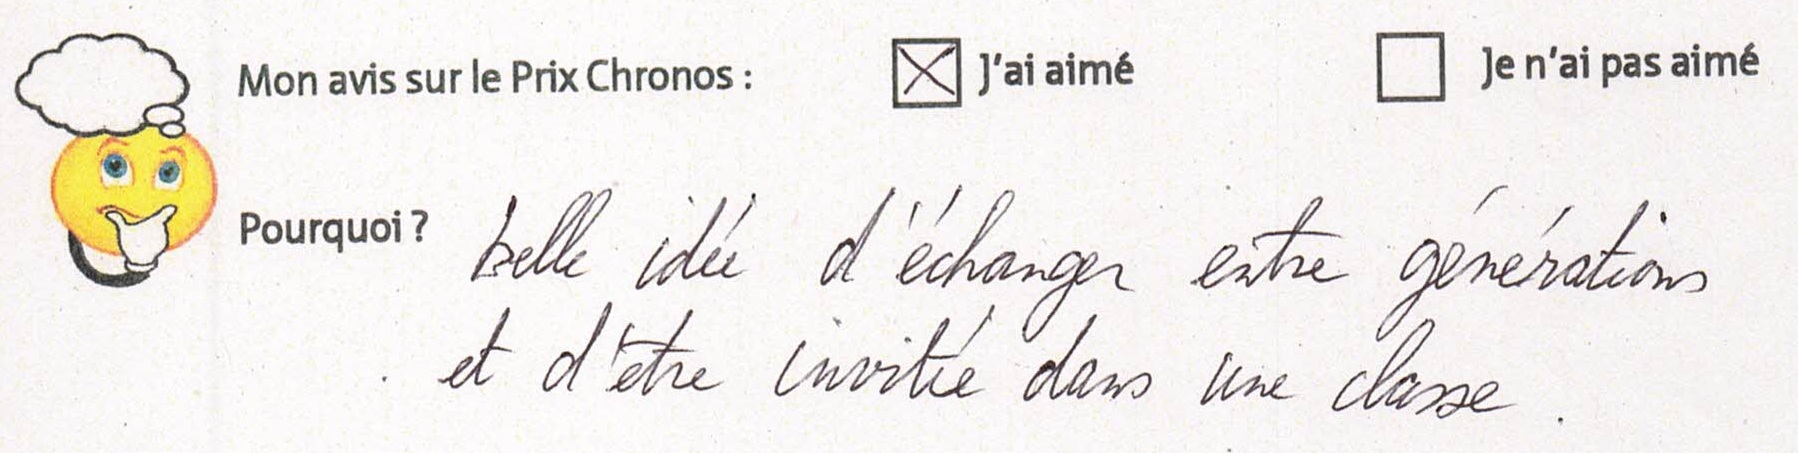 Mon avis sur le Prix Chronos : ☒ J'ai aimé ☐ Je n'ai pas aimé
Pourquoi ? belle idée d'échanger entre générations
et d'être invitée dans une classe.